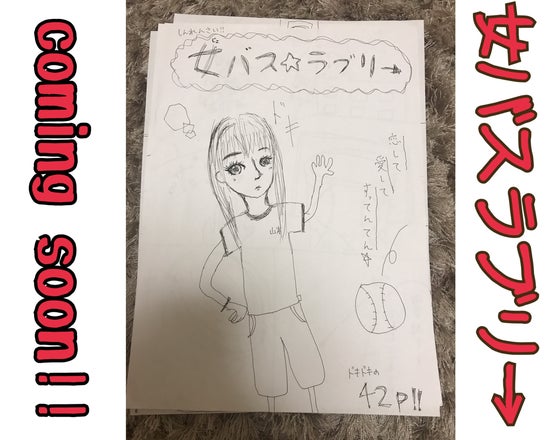 coming soon!!
女バスラブリー→
しんれんさい!!
女バス☆ラブリー→
じょ
ドキ
恋して
愛して
すってんてん☆
ドキドキの
42p!!